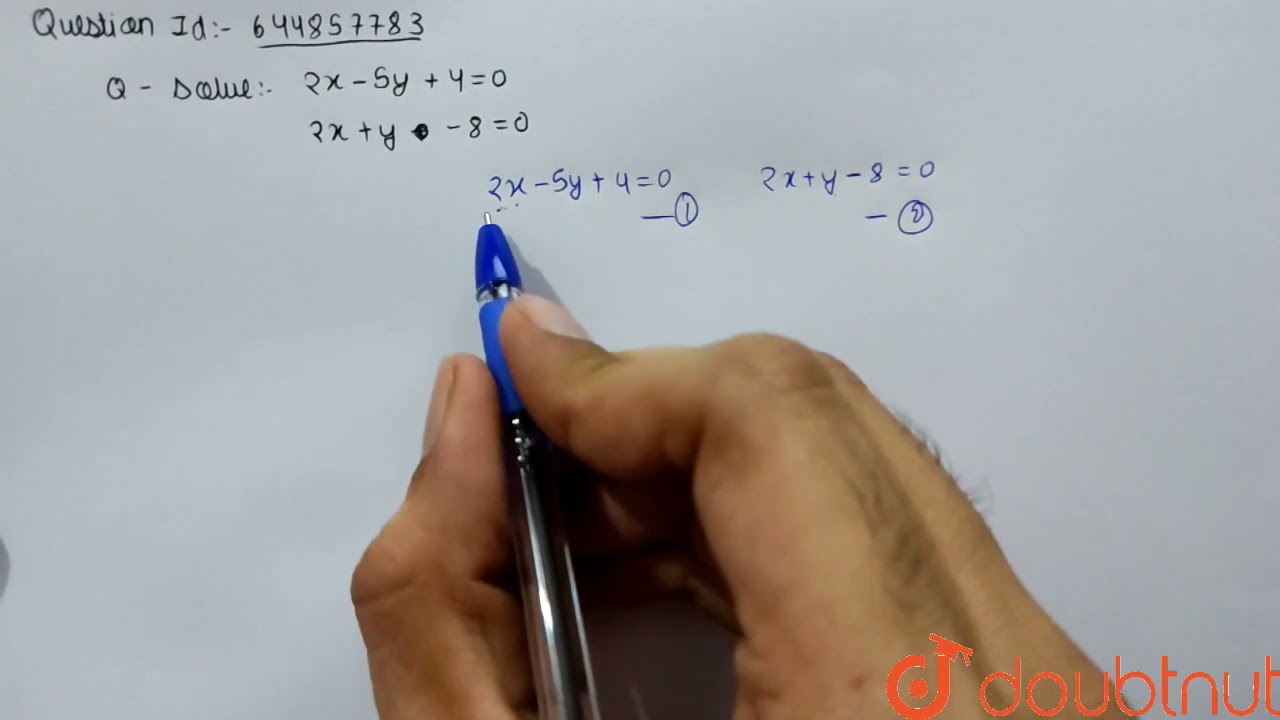 Question Id:- 644857783
Q - Solve:- 2x - 5y + 4 = 0
2x + y - 8 = 0
2x - 5y + 4 = 0 2x + y - 8 = 0
— ① - ②
doubtnut